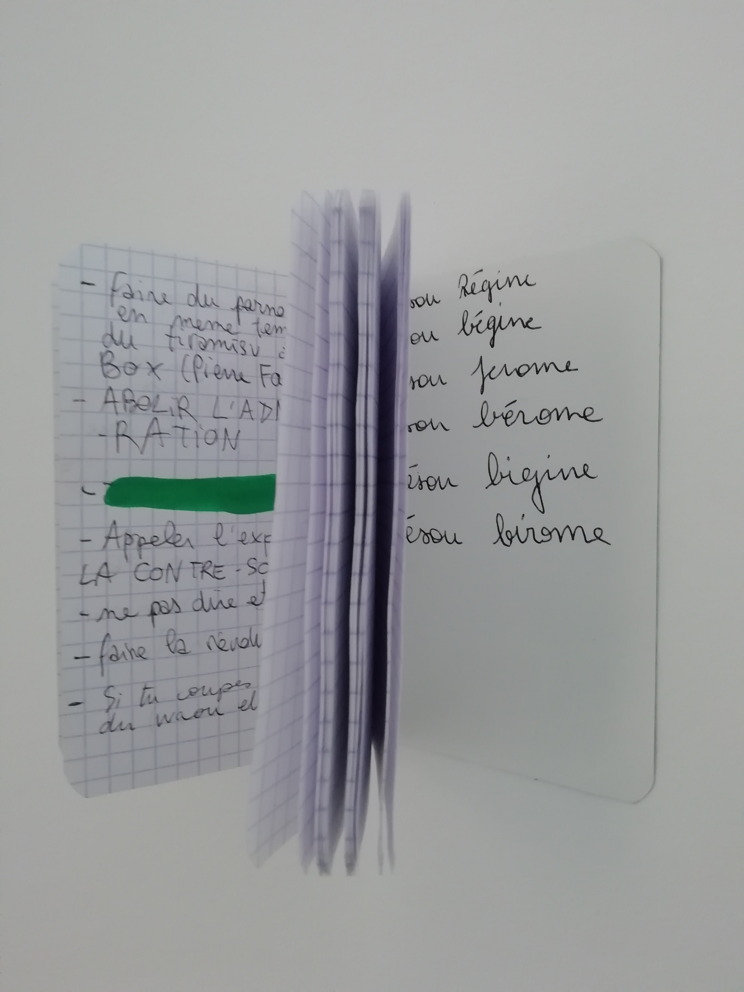 - faire du porno
en meme tem
du tiramisu
BOX (Pierre Fa
- ABOLIR L'ADI
-RATION
-
- Appeler l'exp
LA CONTRE-SC
- ne pas dire et
- faire la révolu
- Si tu coupes
du waou et
sou Régine
ou bégine
sou jerome
sou bérome
ésou bigine
ésou birome